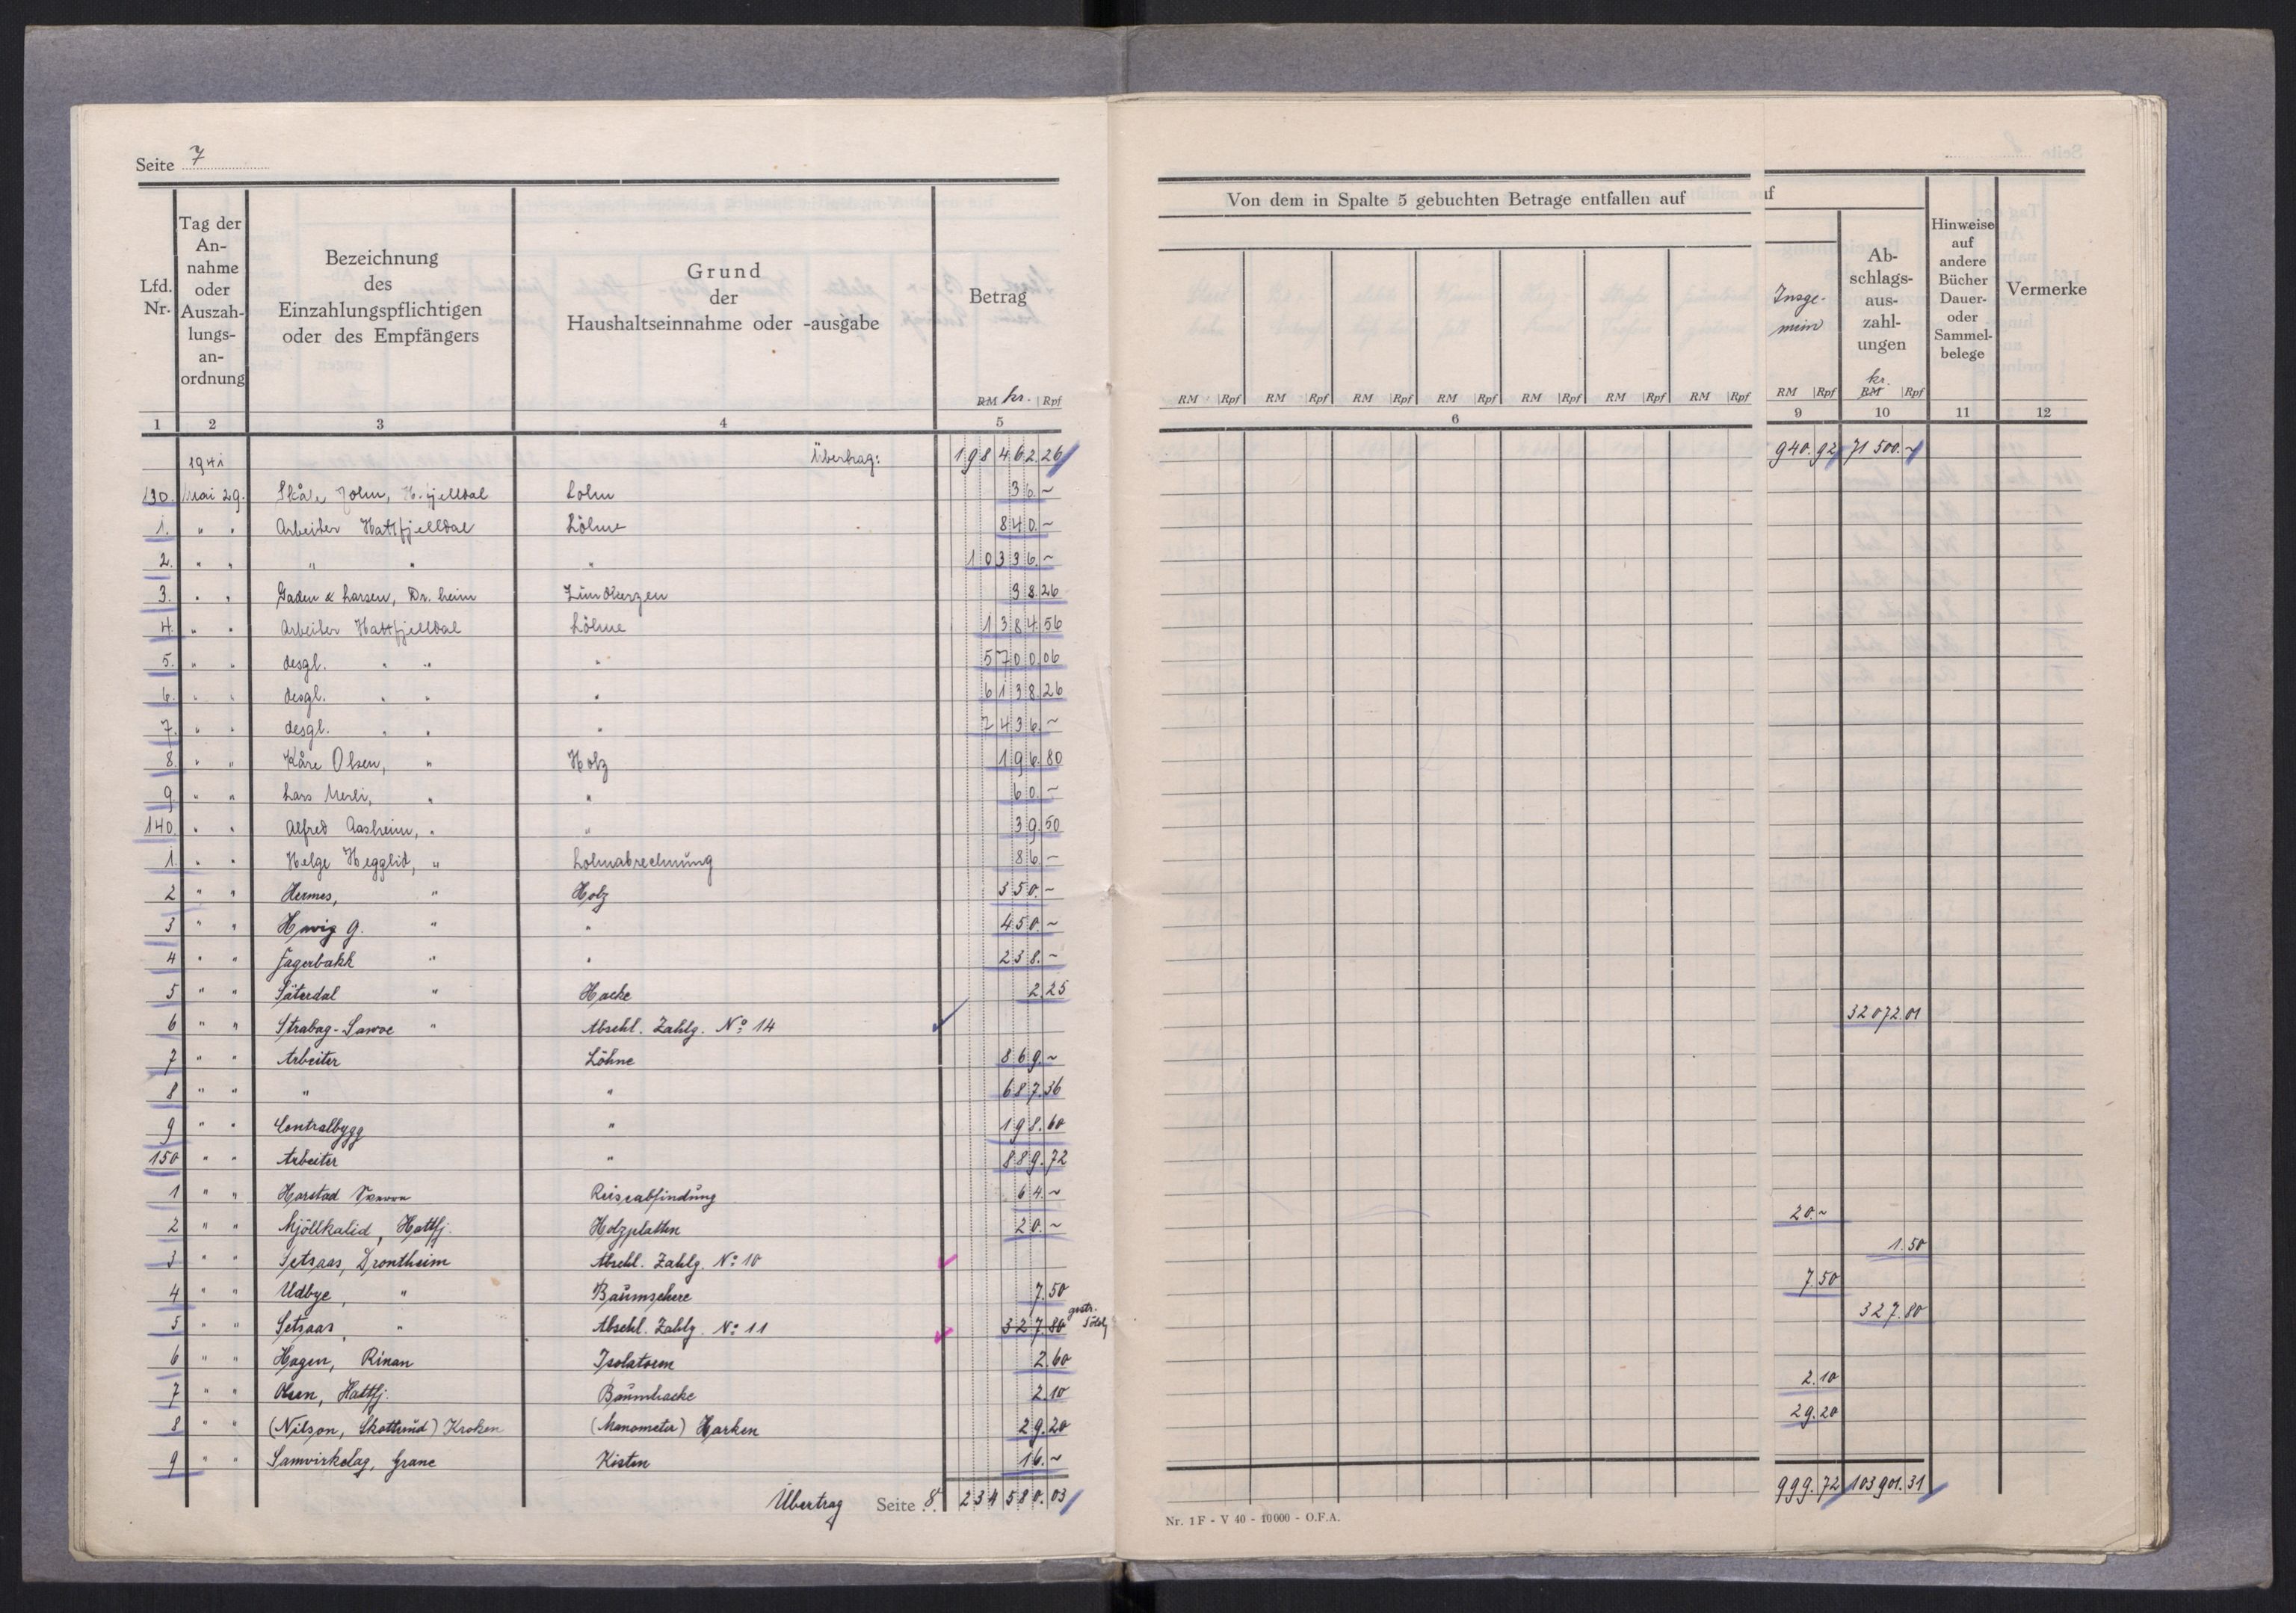 Seite 7
Lfd. Nr.
Tag der An-nahme oder Auszah-lungs-an-ordnung
Bezeichnung des Einzahlungspflichtigen oder des Empfängers
Grund der Haushaltseinnahme oder -ausgabe
Betrag
RM kr. Rpf
1 2 3 4 5
1941 Übertrag: 198 462.26
130. Mai 29. Skåle John, H.fjelldal Lohn 36.~
1. " " Arbeiter Hattfjelldal Löhne 840.~
2. " " " " " 10336.~
3. " " Gaden & Larsen, Dr. heim Zündkerzen 98.26
4. " " Arbeiter Hattfjelldal Löhne 1384.56
5. " " desgl. " " " 5700.06
6. " " desgl. " " " 6138.26
7. " " desgl. " " " 7436.~
8. " " Kåre Olsen, " Holz 196.80
9. " " Lars Merli, " " 60.–
140. " " Alfred Aasheim, " " 39.50
1. " " Helge Hegglid, " Lohnabrechnung 86.–
2 " " Hermes, " Holz 350.~
3 " " G. " " 450.~
4 " " Fagerbakk " " 238.~
5 " " Säterdal " Hacke 2.25
6 " " Strabag- " Abschl. Zahlg. No 14
7 " " Arbeiter Löhne 869.~
8 " " " " 687.36
9 " " Centralbygg " 198.60
150 " " Arbeiter " 889.72
1 " " Harstad Reiseabfindung 64.~
2 " " Mjöllkalid, Hattfj. Holzplatten 20.~
3 " " Setsaas, Drontheim Abschl. Zahlg. No 10
4 " " Udbye, " Baumschere 7.50
5 " " Setsaas, " Abschl. Zahlg. No 11 327.80 gestr.
6 " " Hagen, Rinan Isolatoren 2.60
7 " " Olsen, Hattfj. Baumhacke 2.10
8 " " (Nilson, Skottrud) Kroken (Manometer) Harken 29.20
9 " " Samvirkelag, Grane Kisten 16.~
Übertrag Seite 8. 234 580.03
Von dem in Spalte 5 gebuchten Betrage entfallen auf
RM Rpf RM Rpf RM Rpf RM Rpf RM Rpf RM Rpf RM Rpf
6
f
Insge-
mein
RM Rpf
9
Ab-
schlags-
aus-
zahl-
ungen
kr.
RM Rpf
10
Hinweise
auf
andere
Bücher
Dauer-
oder
Sammel-
belege
11
Vermerke
12
940.92 71 500.~
32072.01
20.~
1.50
7.50
327.80
2.10
29.20
999.72 103901.31
Nr. 1 F - V 40 - 10000 - O.F.A.